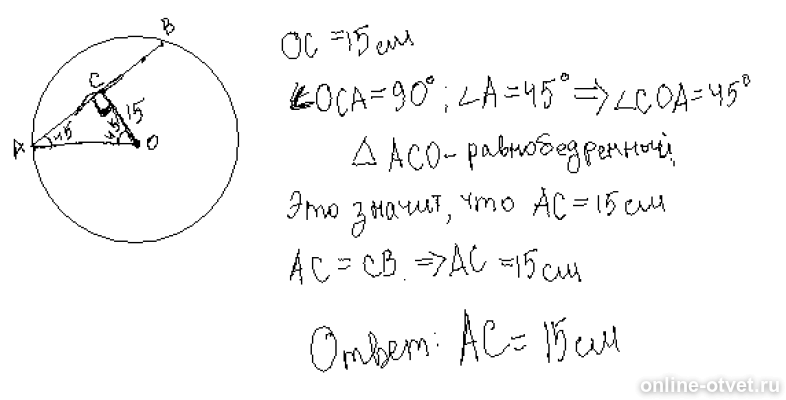 OC = 15 см
∠OCA = 90°; ∠A = 45° ⇒ ∠COA = 45°
△ ACO - равнобедренный;
Это значит, что AC = 15 см
AC = CB. ⇒ AC = 15 см
Ответ: AC = 15 см
B
C
15
A
45
45
O
online-otvet.ru